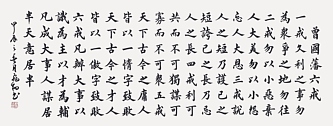 曾國藩六戒
一戒久利之事勿
為衆爭之地勿往
二戒勿以小惡棄
人大美勿以小恩
忘人大恩三戒說
人之短乃護己之
短誇己之長乃忌
人之長四戒利可
共而不可獨謀可
寡而不可衆五戒
天下古今之庸人
皆以一惰字致敗
天下古今之才人
皆以一傲字致敗
六戒凡辦大事以
識為主以才為輔
凡成大事人謀居
半天意居半